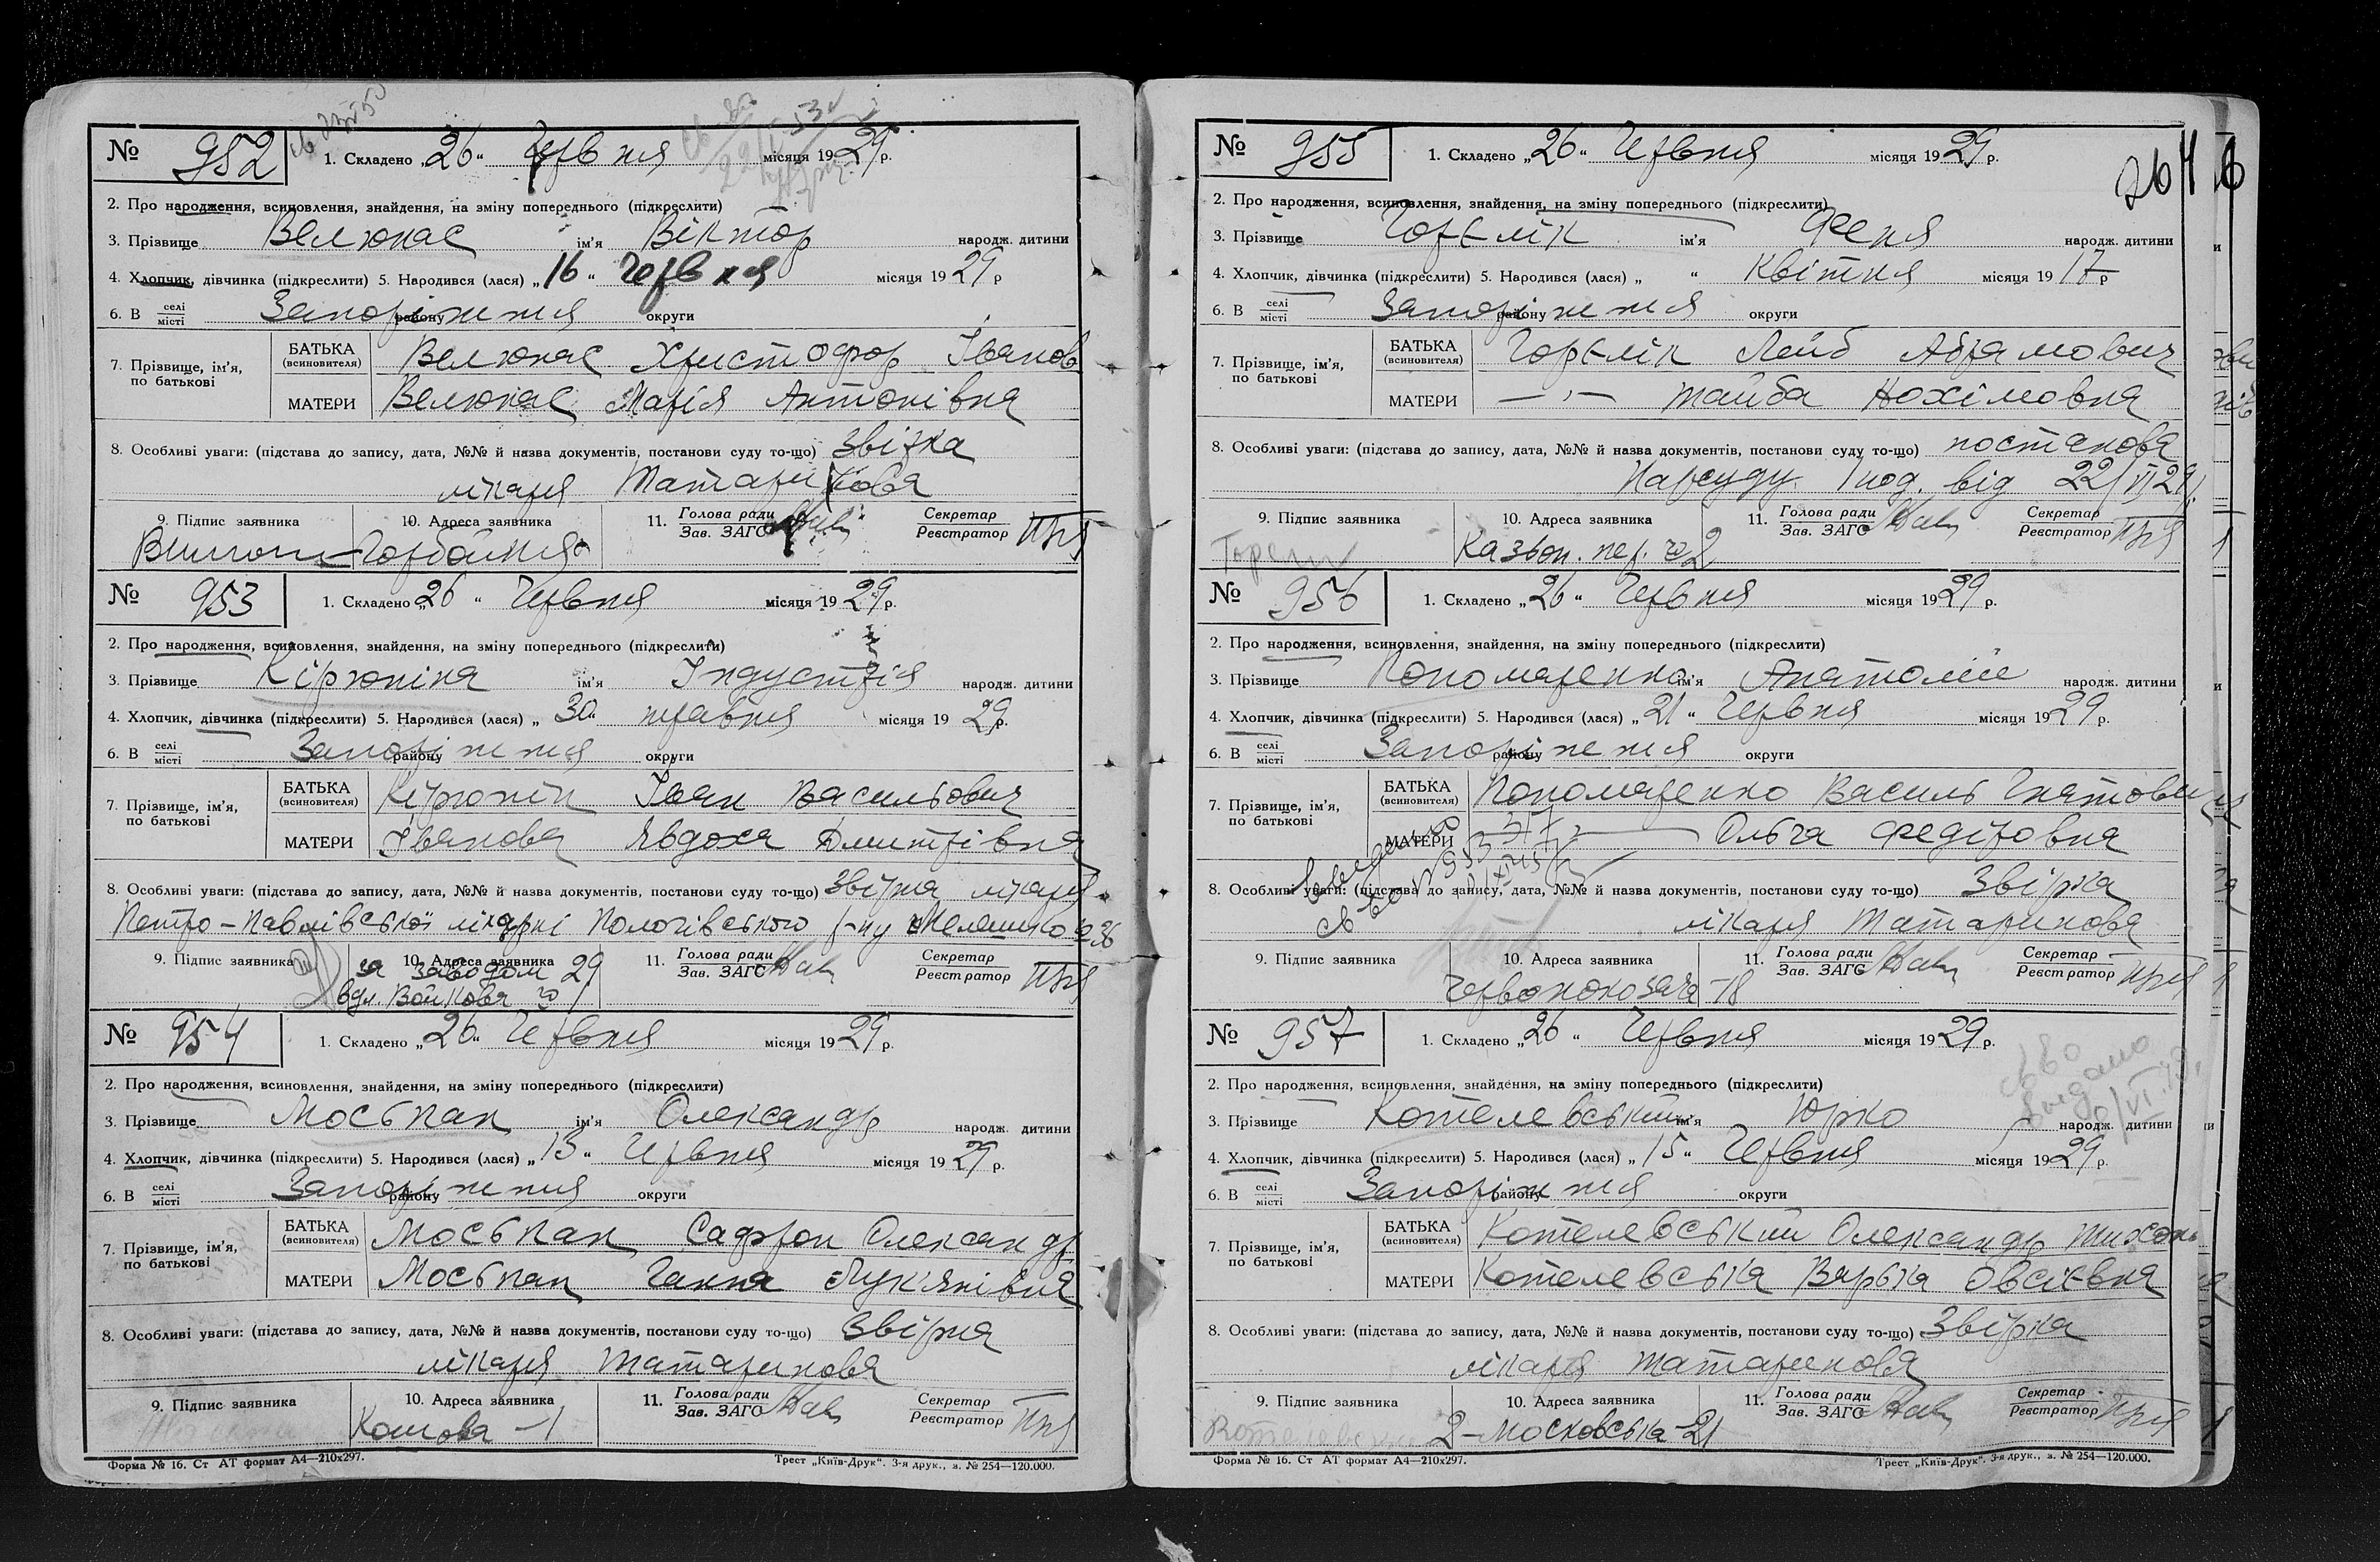 № 952 1. Складено „26“ Червня місяця 1929 р.
2. Про народження, всиновлення, знайдення, на зміну попереднього (підкреслити)
3. Прізвище Велюнас ім'я Віктор народж. дитини
4. Хлопчик, дівчинка (підкреслити) 5. Народився (лася) „16“ Червня місяця 1929 р
6. В селі місті Запоріжжя району округи
7. Прізвище, ім'я, по батькові БАТЬКА (всиновителя) Велюнас Христофор Іванов
МАТЕРИ Велюнас Марія Антонівна
8. Особливі уваги: (підстава до запису, дата, №№ й назва документів, постанови суду то-що) Звірка
лікаря Татаринова
9. Підпис заявника 10. Адреса заявника 11. Голова ради Зав. ЗАГС Секретар Реєстратор
№ 953 1. Складено „26“ Червня місяця 1929 р.
2. Про народження, всиновлення, знайдення, на зміну попереднього (підкреслити)
3. Прізвище Кірюніна ім'я Індустрія народж. дитини
4. Хлопчик, дівчинка (підкреслити) 5. Народився (лася) „30“ травня місяця 1929 р.
6. В селі місті Запоріжжя району округи
7. Прізвище, ім'я, по батькові БАТЬКА (всиновителя) Кірюнін Іван Васильович
МАТЕРИ Іванова Явдоха Дмитрівна
8. Особливі уваги: (підстава до запису, дата, №№ й назва документів, постанови суду то-що) Звірка лікаря
Петро-Павлівської лікарні Пологівського р-ну № 36
9. Підпис заявника 10. Адреса заявника за заводом 29 11. Голова ради Зав. ЗАГС Секретар Реєстратор
вул. Войкова
№ 954 1. Складено „26“ Червня місяця 1929 р.
2. Про народження, всиновлення, знайдення, на зміну попереднього (підкреслити)
3. Прізвище Моськпан ім'я Олександр народж. дитини
4. Хлопчик, дівчинка (підкреслити) 5. Народився (лася) „13“ Червня місяця 1929 р.
6. В селі місті Запоріжжя району округи
7. Прізвище, ім'я, по батькові БАТЬКА (всиновителя) Моськпан Сафрон Олександр
МАТЕРИ Моськпан Ганна Лук'янівна
8. Особливі уваги: (підстава до запису, дата, №№ й назва документів, постанови суду то-що) Звірка
лікаря Татаринова
9. Підпис заявника 10. Адреса заявника 11. Голова ради Зав. ЗАГС Секретар Реєстратор
Кошова -1
Форма № 16. Ст АТ формат А4—210х297. Трест „Київ-Друк“. 3-я друк., з. № 254—120.000.
№ 955 1. Складено „26“ Червня місяця 1929 р.
264
2. Про народження, всиновлення, знайдення, на зміну попереднього (підкреслити)
3. Прізвище Горєлік ім'я Феня народж. дитини
4. Хлопчик, дівчинка (підкреслити) 5. Народився (лася) „ “ Квітня місяця 1917 р
6. В селі місті Запоріжжя району округи
7. Прізвище, ім'я, по батькові БАТЬКА (всиновителя) Горєлік Лейб Абрамович
МАТЕРИ —,,— Тайба Нохімовна
8. Особливі уваги: (підстава до запису, дата, №№ й назва документів, постанови суду то-що) постанова
Нарсуду 1 від 22/VI 29
9. Підпис заявника 10. Адреса заявника 11. Голова ради Зав. ЗАГС Секретар Реєстратор
пер. № 2
№ 956 1. Складено „26“ Червня місяця 1929 р.
2. Про народження, всиновлення, знайдення, на зміну попереднього (підкреслити)
3. Прізвище Пономаренко ім'я Анатолій народж. дитини
4. Хлопчик, дівчинка (підкреслити) 5. Народився (лася) „21“ Червня місяця 1929 р.
6. В селі місті Запоріжжя району округи
7. Прізвище, ім'я, по батькові БАТЬКА (всиновителя) Пономаренко Василь Гнатович
МАТЕРИ —,,— Ольга Федіровна
8. Особливі уваги: (підстава до запису, дата, №№ й назва документів, постанови суду то-що) Звірка
лікаря Татаринова
9. Підпис заявника 10. Адреса заявника 11. Голова ради Зав. ЗАГС Секретар Реєстратор
Червонокозача -18
№ 957 1. Складено „26“ Червня місяця 1929 р.
2. Про народження, всиновлення, знайдення, на зміну попереднього (підкреслити)
3. Прізвище Котелевський ім'я Юрко народж. дитини
4. Хлопчик, дівчинка (підкреслити) 5. Народився (лася) „15“ Червня місяця 1929 р.
6. В селі місті Запоріжжя району округи
7. Прізвище, ім'я, по батькові БАТЬКА (всиновителя) Котелевський Олександр Тихонь
МАТЕРИ Котелевська Варька Овсієвна
8. Особливі уваги: (підстава до запису, дата, №№ й назва документів, постанови суду то-що) Звірка
лікаря Татаринова
9. Підпис заявника 10. Адреса заявника 11. Голова ради Зав. ЗАГС Секретар Реєстратор
2-Московська-21
Форма № 16. Ст АТ формат А4—210х297. Трест „Київ-Друк“. 3-я друк., з. № 254—120.000.